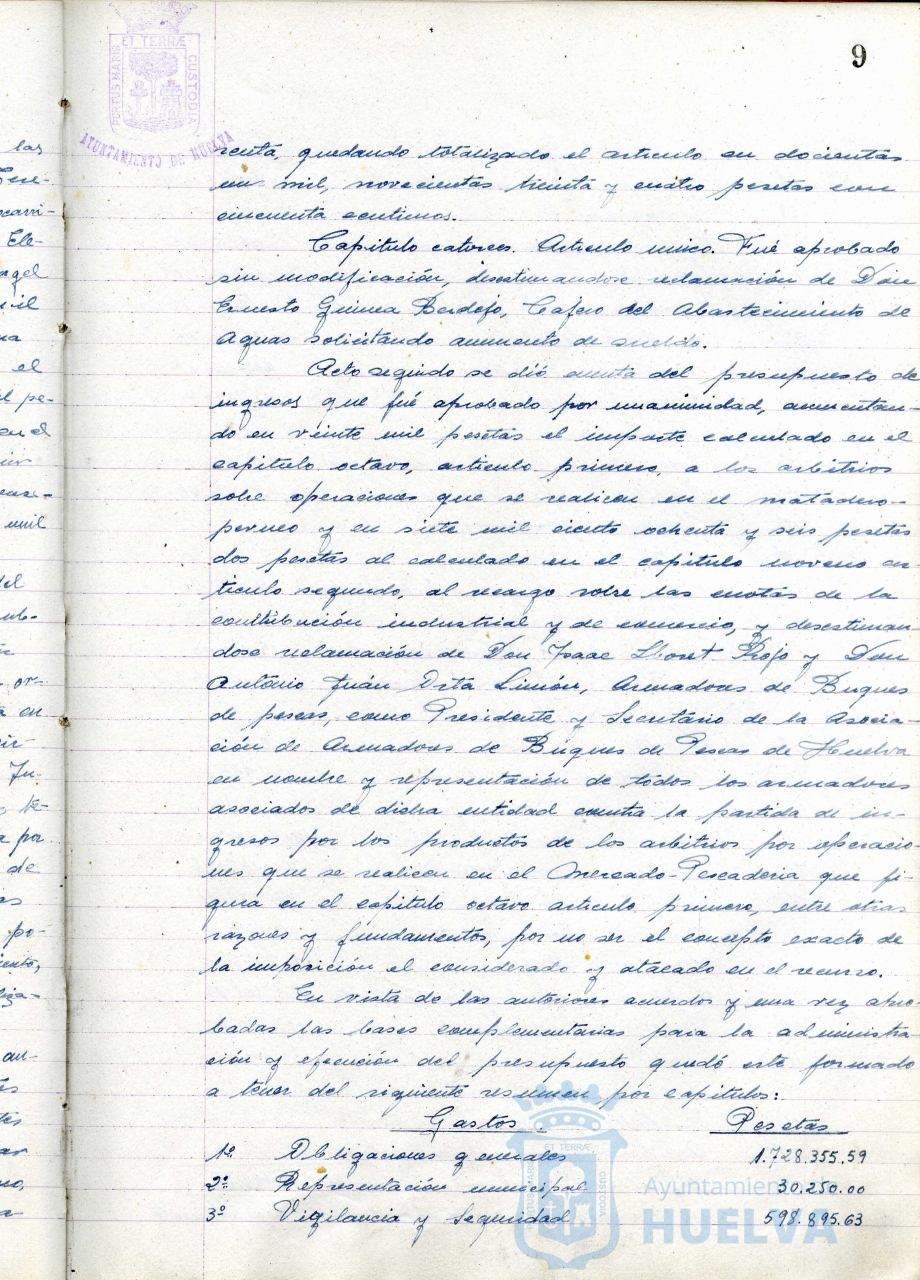 9
PORTUS MARIS ET TERRÆ CUSTODIA
AYUNTAMIENTO DE HUELVA
renta, quedando totalizado el articulo en docientas
un mil, novecientas treinta y cuatro pesetas con
cincuenta centimos.
Capitulo catorce. Articulo unico. Fué aprobado
sin modificación, desestimandose reclamación de Don
Ernesto Guinea Berdejo, Cajero del Abastecimiento de
Aguas solicitando aumento de sueldo.
Acto seguido se dió cuenta del presupuesto de
ingresos que fué aprobado por unanimidad, aumentan-
do en veinte mil pesetas el importe calculado en el
capitulo octavo, articulo primero, a los arbitrios
sobre operaciones que se realicen en el matadero-
porcuno y en siete mil ciento ochenta y seis pesetas
dos pesetas al calculado en el capitulo noveno ar-
ticulo segundo, al recargo sobre las cuotas de la
contribución industrial y de comercio, y desestiman-
dose reclamación de Don Isaac Lloret Rojo y Don
Antonio Juán Orta Limón, Armadores de Buques
de pescas, como Presidente y Secretário de la Asocia-
ción de Armadores de Buques de Pescas de Huelva
en nombre y representación de todos los armadores
asociados de dicha entidad contra la partida de in-
gresos por los productos de los arbitrios por operacio-
nes que se realicen en el Mercado-Pescaderia que fi-
gura en el capitulo octavo articulo primero, entre otras
razones y fundamentos, por no ser el concepto exacto de
la imposición el considerado y atacado en el recurso.
En vista de las anteriores acuerdos y una vez apro-
badas las bases complementarias para la administra
ción y ejecución del presupuesto quedó este formado
a tenor del siguiente resumen por capitulos:
Gastos Pesetas
1º Obligaciones generales 1.728.355.59
2º Representación municipal 30.250.00
3º Vigilancia y Seguridad 598.895.63
Ayuntamiento de
HUELVA